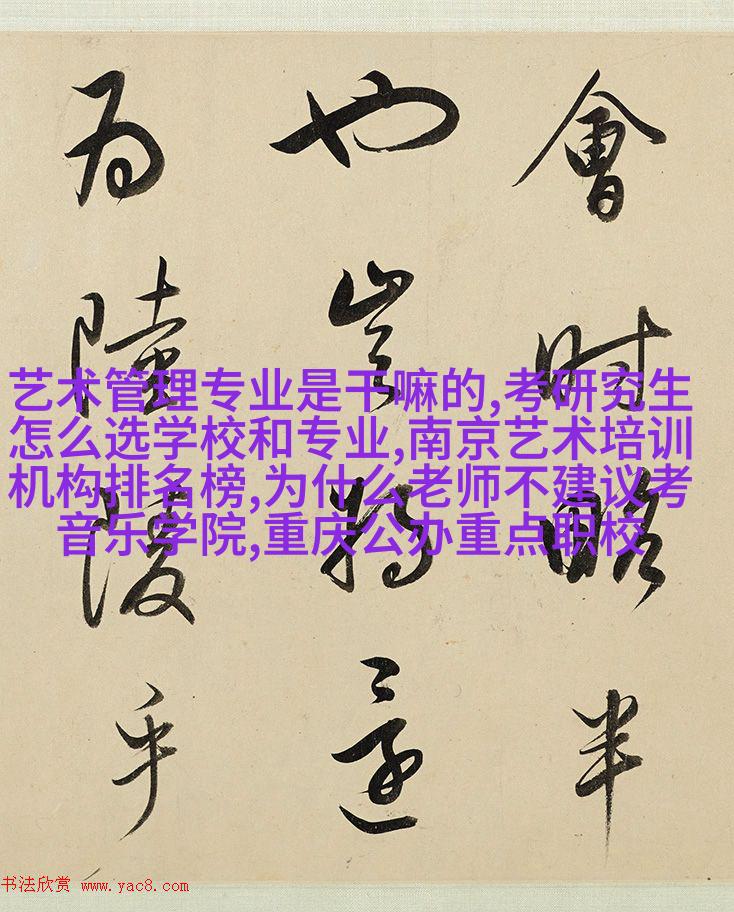 會時略半
也豈還
為陸陵乎
艺术管理专业是干嘛的,考研究生
怎么选学校和专业,南京艺术培训
机构排名榜,为什么老师不建议考
音乐学院,重庆公办重点职校
书法欣赏 www.yac8.com